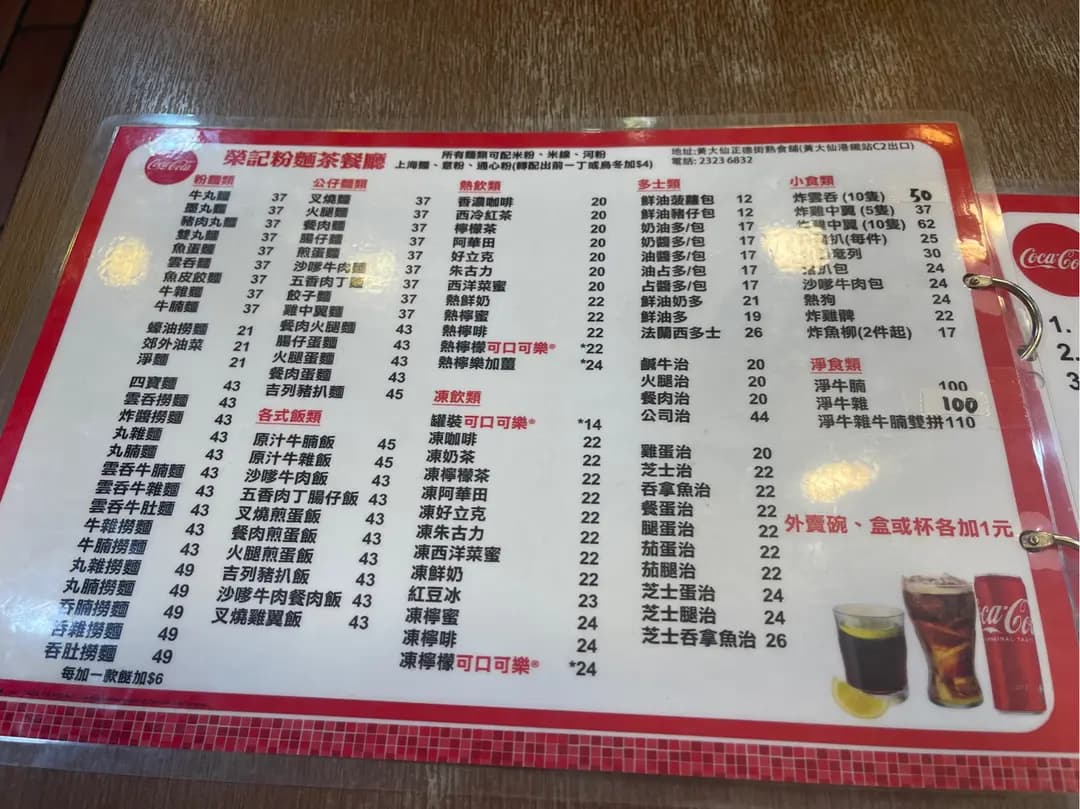 Coca-Cola
榮記粉麵茶餐廳
所有麵類可配米粉、米線、河粉
上海麵、意粉、通心粉(轉配出前一丁或烏冬加$4)
地址:黃大仙正德街熟食舖(黃大仙港鐵站C2出口)
電話: 2323 6832
粉麵類
牛丸麵 37
墨丸麵 37
豬肉丸麵 37
雙丸麵 37
魚蛋麵 37
雲吞麵 37
魚皮餃麵 37
牛雜麵 37
牛腩麵 37
蠔油撈麵 21
郊外油菜 21
淨麵 21
四寶麵 43
雲吞撈麵 43
炸醬撈麵 43
丸雜麵 43
丸腩麵 43
雲吞牛腩麵 43
雲吞牛雜麵 43
雲吞牛肚麵 43
牛雜撈麵 43
牛腩撈麵 43
丸雜撈麵 49
丸腩撈麵 49
吞腩撈麵 49
吞雜撈麵 49
吞肚撈麵 49
每加一款餸加$6
公仔麵類
叉燒麵 37
火腿麵 37
餐肉麵 37
腸仔麵 37
煎蛋麵 37
沙嗲牛肉麵 37
五香肉丁麵 37
餃子麵 37
雞中翼麵 37
餐肉火腿麵 43
腸仔蛋麵 43
火腿蛋麵 43
餐肉蛋麵 43
吉列豬扒麵 45
各式飯類
原汁牛腩飯 45
原汁牛雜飯 45
沙嗲牛肉飯 43
五香肉丁腸仔飯 43
叉燒煎蛋飯 43
餐肉煎蛋飯 43
火腿煎蛋飯 43
吉列豬扒飯 43
沙嗲牛肉餐肉飯 43
叉燒雞翼飯 43
熱飲類
香濃咖啡 20
西冷紅茶 20
檸檬茶 20
阿華田 20
好立克 20
朱古力 20
西洋菜蜜 20
熱鮮奶 22
熱檸蜜 22
熱檸啡 22
熱檸檬可口可樂® *22
熱檸樂加薑 *24
凍飲類
罐裝可口可樂® *14
凍咖啡 22
凍奶茶 22
凍檸檬茶 22
凍阿華田 22
凍好立克 22
凍朱古力 22
凍西洋菜蜜 22
凍鮮奶 22
紅豆冰 23
凍檸蜜 24
凍檸啡 24
凍檸檬可口可樂® *24
多士類
鮮油菠蘿包 12
鮮油豬仔包 12
奶油多/包 17
奶醬多/包 17
油醬多/包 17
油占多/包 17
占醬多/包 17
鮮油奶多 21
鮮油多 19
法蘭西多士 26
鹹牛治 20
火腿治 20
餐肉治 20
公司治 44
雞蛋治 20
芝士治 22
吞拿魚治 22
餐蛋治 22
腿蛋治 22
茄蛋治 22
茄腿治 22
芝士蛋治 24
芝士腿治 24
芝士吞拿魚治 26
小食類
炸雲吞 (10隻) 50
炸雞中翼 (5隻) 37
炸雞中翼 (10隻) 62
扒(每件) 25
奄列 30
扒包 24
沙嗲牛肉包 24
熱狗 24
炸雞髀 22
炸魚柳(2件起) 17
淨食類
淨牛腩 100
淨牛雜 100
淨牛雜牛腩雙拼110
外賣碗、盒或杯各加1元
Coca-Co
1.
2.
3
ca-Co